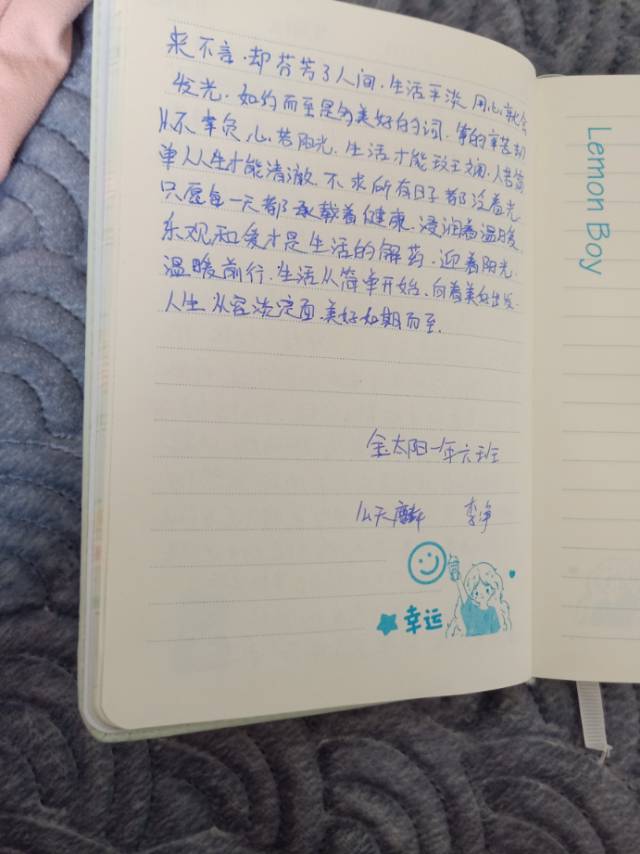 来不言.却芬芳了人间.生活平淡.用心就会
发光.如约而至是多美好的词.等的辛苦却
从不辜负.心若阳光.生活才能
单人生才能清澈.不求所有日子都泛着光.
只愿每一天都承载着健康.浸润着温暖.
乐观和爱才是生活的解药.迎着阳光.
温暖前行.生活从简单开始.向着美好出发.
人生.从容淡定面.美好如期而至.
金太阳一年六班
天麟 李净
幸运
Lemon Boy